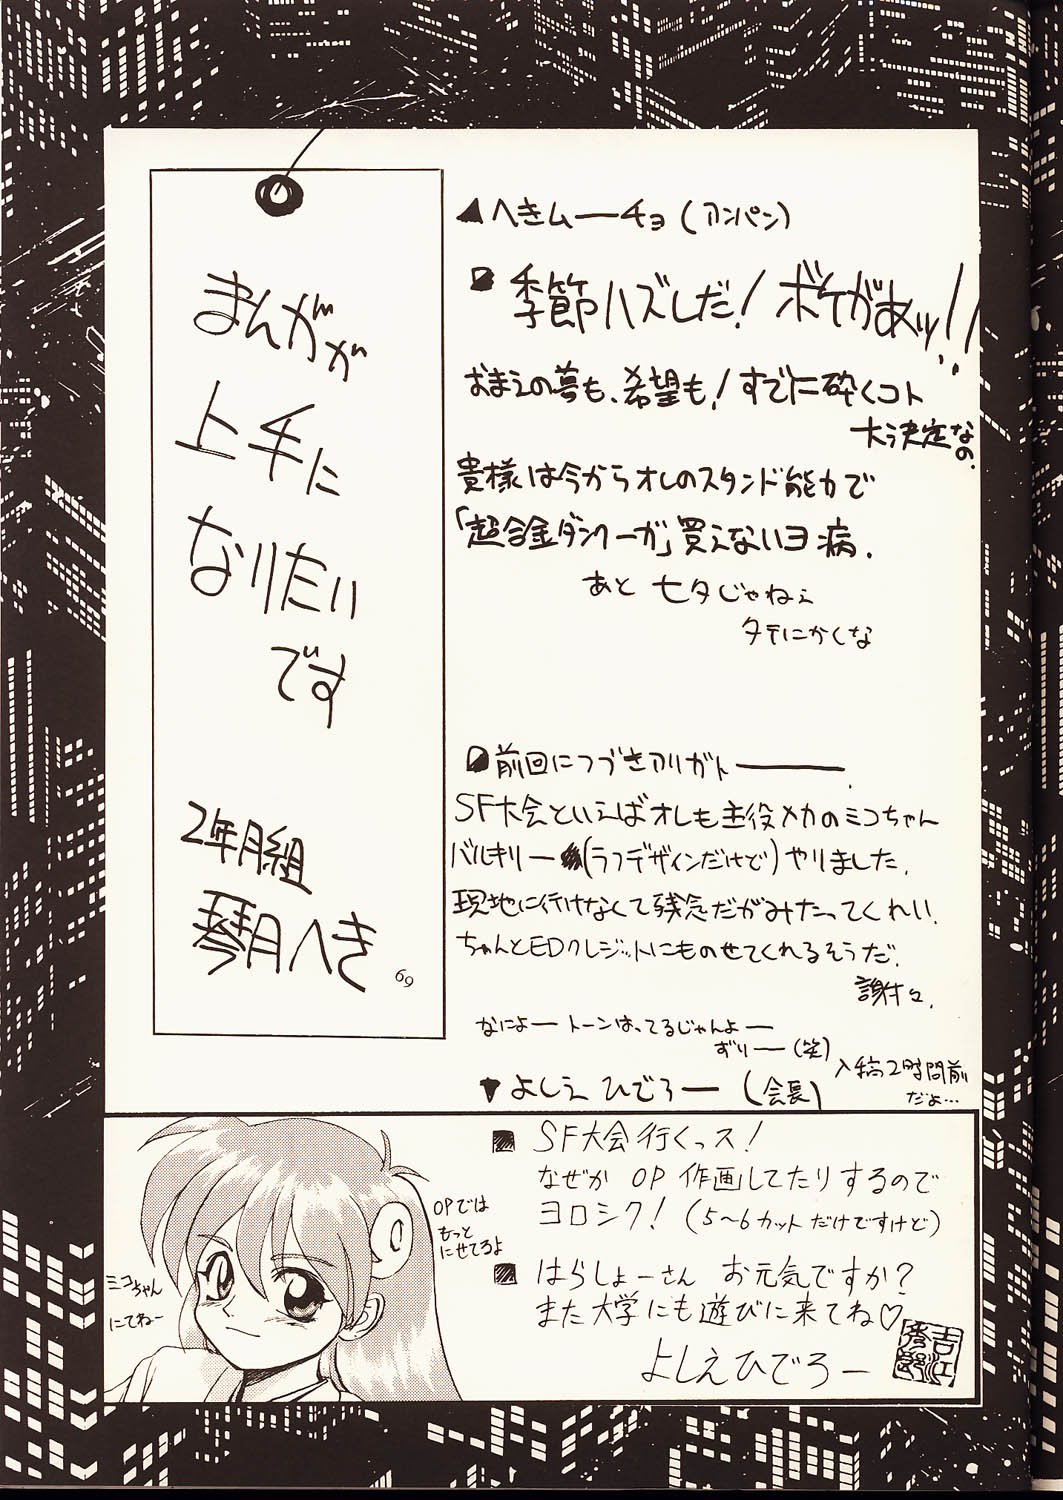 まんがが
上手に
なりたい
です
2年月組
琴月へき
69
▲へきムーチョ(アンパン)
季節ハズレだ!ボケがあッ!!
おまえの夢も、希望も!すでに砕くコト
大決定なの。
貴様は今からオレのスタンド能力で
「超合金ダンクーガ」買えないヨ病.
あと 七夕じゃねえ
タテにかくな
前回につづきアリガトー
SF大会といえばオレも主役メカのミコちゃん
バルキリー(ラフデザインだけど)やりました.
現地に行けなくて残念だがみたってくれい.
ちゃんとEDクレジットにものせてくれるそうだ.
謝々.
なによートーンはってるじゃんよー
ずりー(笑)
入稿2時間前
だよ…
▼よしえ ひでろー(会長)
SF大会行くっス!
なぜか OP 作画してたりするので
ヨロシク!(5〜6カットだけですけど)
はらしょーさん お元気ですか?
また大学にも遊びに来てね♡
よしえひでろー
吉江
OPでは
もっと
にせてるよ
ミコちゃん
にてねー